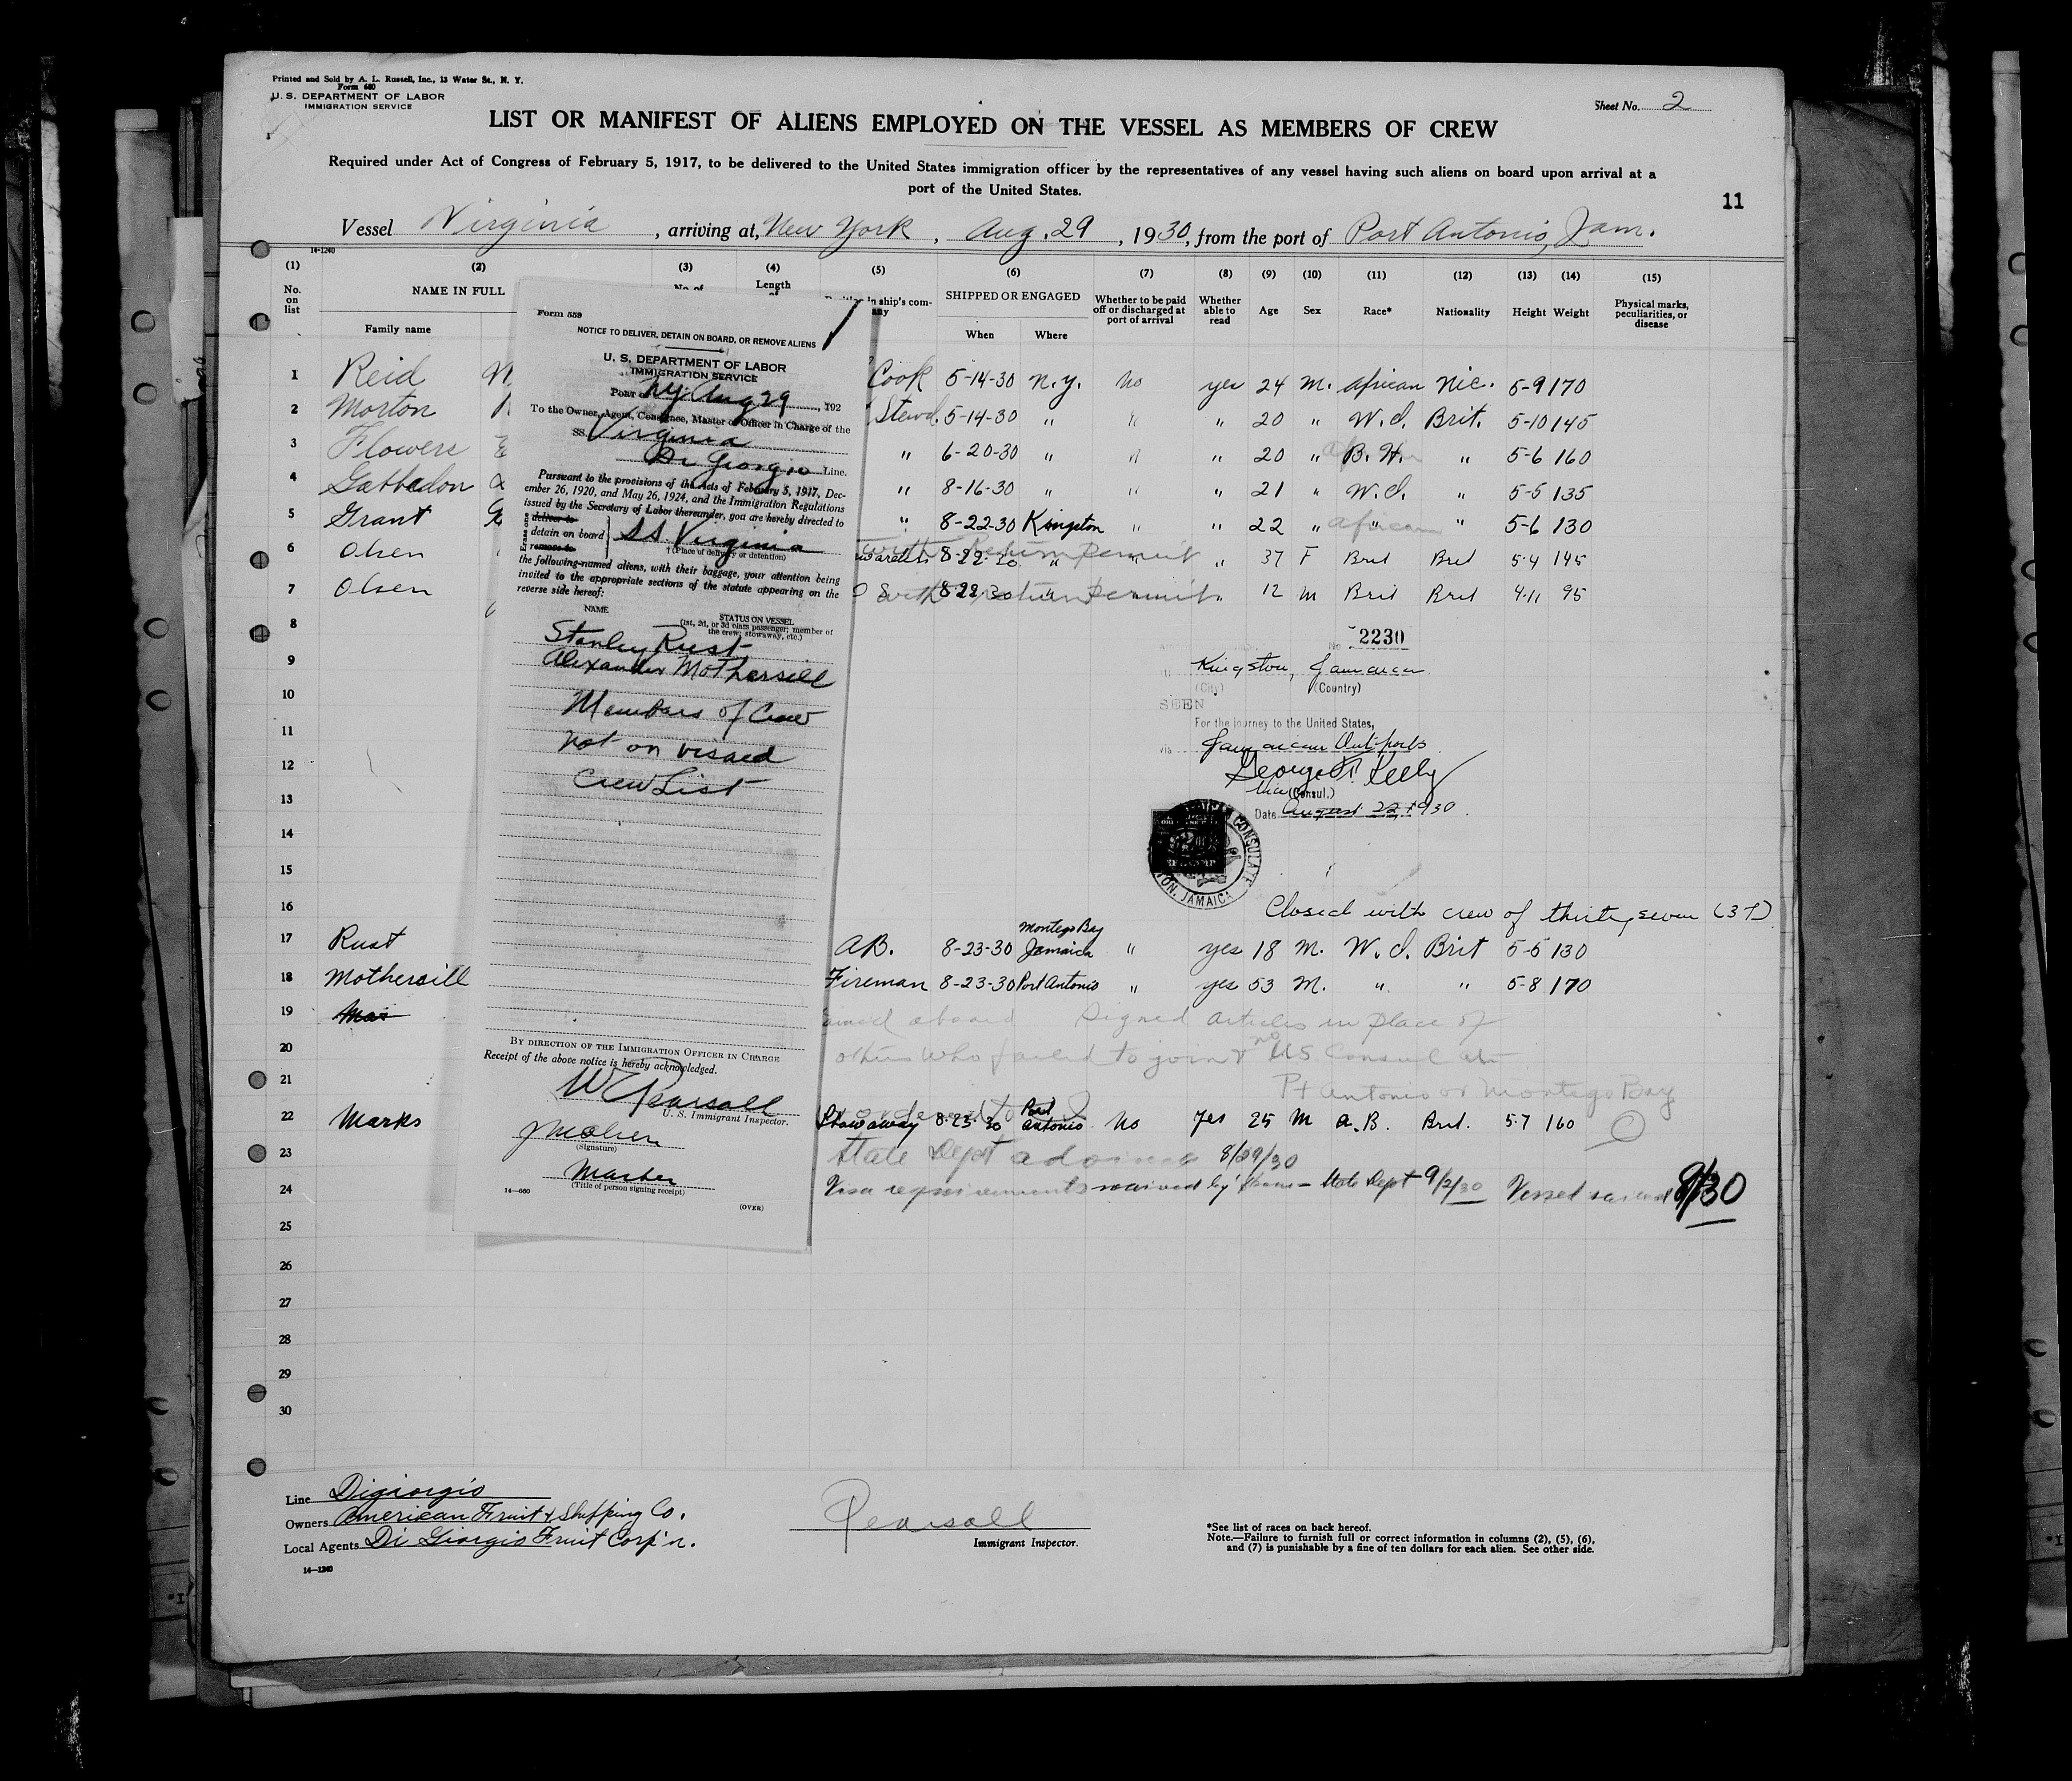 Printed and Sold by A. L. Russell, Inc., 13 Water St., N. Y.
Form 680
U. S. DEPARTMENT OF LABOR
IMMIGRATION SERVICE
Sheet No. 2
LIST OR MANIFEST OF ALIENS EMPLOYED ON THE VESSEL AS MEMBERS OF CREW
Required under Act of Congress of February 5, 1917, to be delivered to the United States immigration officer by the representatives of any vessel having such aliens on board upon arrival at a
port of the United States.
11
Vessel Virginia, arriving at, New York, Aug. 29, 1930, from the port of Port Antonio, Jam.
14-1240
(1) (2) (3) (4) (5) (6) (7) (8) (9) (10) (11) (12) (13) (14) (15)
No. on list
NAME IN FULL
Family name
No. of
Length of
in ship's com-
any
SHIPPED OR ENGAGED
When Where
Whether to be paid off or discharged at port of arrival
Whether able to read
Age Sex Race* Nationality Height Weight
Physical marks, peculiarities, or disease
1 Reid Cook 5-14-30 N.Y. No yes 24 M. African Nic. 5-9 170
2 Morton Stewd. 5-14-30 " " " 20 " W.I. Brit. 5-10 145
3 Flowers " 6-20-30 " " " 20 " B.H. " 5-6 160
4 " 8-16-30 " " " 21 " W.I. " 5-5 135
5 Grant " 8-22-30 Kingston " " 22 " African " 5-6 130
6 Olsen 8-22-30 " " " 37 F Brit Brit 5-4 145
with Return Permit
7 Olsen 8-22-30 " " 12 M Brit Brit 4-11 95
with return Permit
8
No. 2230
9
Kingston, Jamaica.
10
(City) (Country)
SEEN
11
For the journey to the United States,
via Jamaican Outports
12
George Kelly
Vice (Consul.)
13
Date August 22, 1930.
14
CONSULATE
KINGSTON, JAMAICA
15
16 Closed with crew of thirty seven (37)
17 Rust AB. 8-23-30 Montego Bay Jamaica " yes 18 M. W.I. Brit 5-5 130
18 Mothersill Fireman 8-23-30 Port Antonio " yes 53 M. " " 5-8 170
19 Signed articles in place of
20 others who failed to join & no US Consul at
21 Pt Antonio or Montego Bay
22 Marks Stowaway 8-23-30 Port Antonio No Yes 25 M A.B. Brit. 5-7 160
23 State Dept 8/29/30
24 Visa requirements waived by State Dept 9/2/30 Vessel sailed
25
26
27
28
29
30
Form 559
NOTICE TO DELIVER, DETAIN ON BOARD, OR REMOVE ALIENS
U. S. DEPARTMENT OF LABOR
IMMIGRATION SERVICE
Port of NY. Aug 29, 192
To the Owner, Agent, Consignee, Master or Officer in Charge of the
SS. Virginia
Di Giorgio Line.
Pursuant to the provisions of the Acts of February 5, 1917, Dec-
ember 26, 1920, and May 26, 1924, and the Immigration Regulations
issued by the Secretary of Labor thereunder, you are hereby directed to
Erase one
deliver to
detain on board
remove to
SS Virginia
(Place of delivery or detention)
the following-named aliens, with their baggage, your attention being
invited to the appropriate sections of the statute appearing on the
reverse side hereof:
NAME
STATUS ON VESSEL
(1st, 2d, or 3d class passenger; member of
the crew; stowaway, etc.)
Stanley Rust
Alexander Mothersill
Members of Crew
not on visaed
Crew List
BY DIRECTION OF THE IMMIGRATION OFFICER IN CHARGE
Receipt of the above notice is hereby acknowledged.
Pearsall
U. S. Immigrant Inspector.
(Signature)
Master
(Title of person signing receipt)
14—660
(OVER)
Line Digiorgio
Owners American Fruit & Shipping Co.
Local Agents Di Giorgio Fruit Corp'n.
14—1240
Pearsall
Immigrant Inspector.
*See list of races on back hereof.
Note.—Failure to furnish full or correct information in columns (2), (5), (6),
and (7) is punishable by a fine of ten dollars for each alien. See other side.